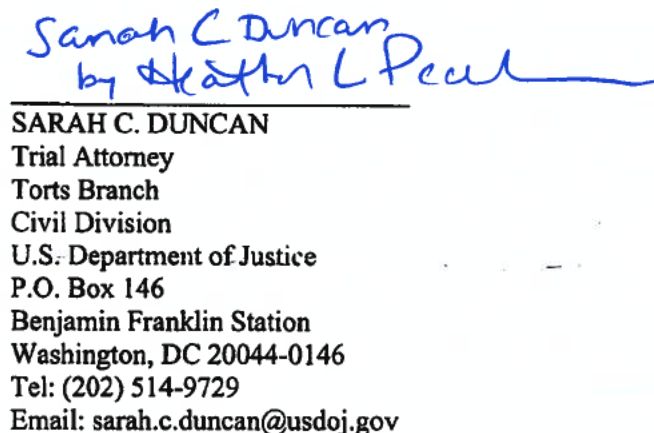 Sarah C Duncan
by Heather L Pearl
SARAH C. DUNCAN
Trial Attorney
Torts Branch
Civil Division
U.S. Department of Justice
P.O. Box 146
Benjamin Franklin Station
Washington, DC 20044-0146
Tel: (202) 514-9729
Email: sarah.c.duncan@usdoj.gov